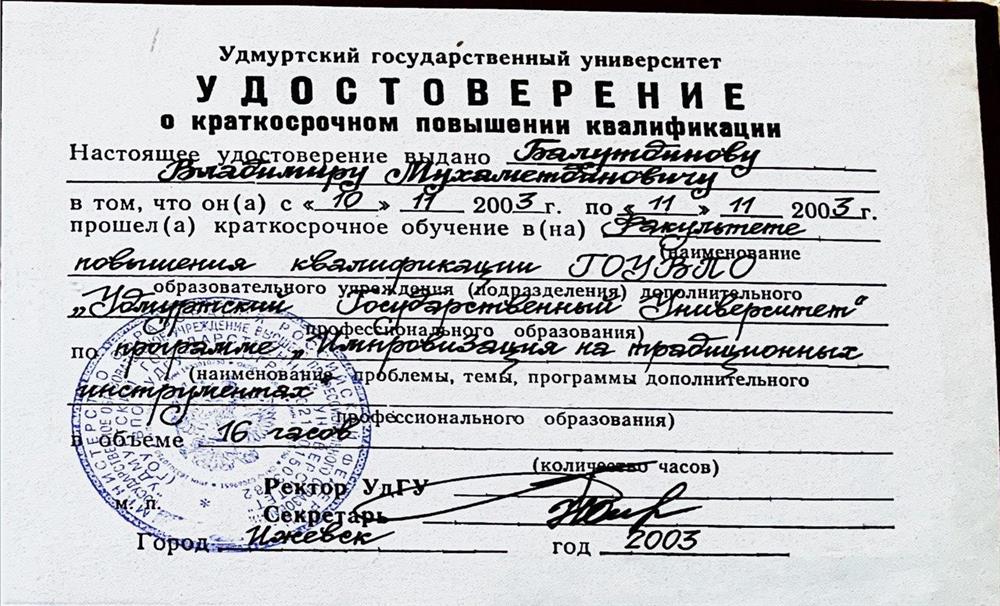 Удмуртский государственный университет
УДОСТОВЕРЕНИЕ
о краткосрочном повышении квалификации
Настоящее удостоверение выдано Балутдинову
Владимиру Мухаметдиновичу
в том, что он(а) с «10» 11 2003 г. по «11» 11 2003 г.
прошел(а) краткосрочное обучение в(на) Факультете
(наименование
повышения квалификации ГОУВПО
образовательного учреждения (подразделения) дополнительного
„Удмуртский Государственный Университет“
профессионального образования)
по программе „Импровизация на традиционных
(наименование проблемы, темы, программы дополнительного
инструментах“
профессионального образования)
в объеме 16 часов
(количество часов)
Ректор УдГУ
м. п. Секретарь
Город Ижевск год 2003